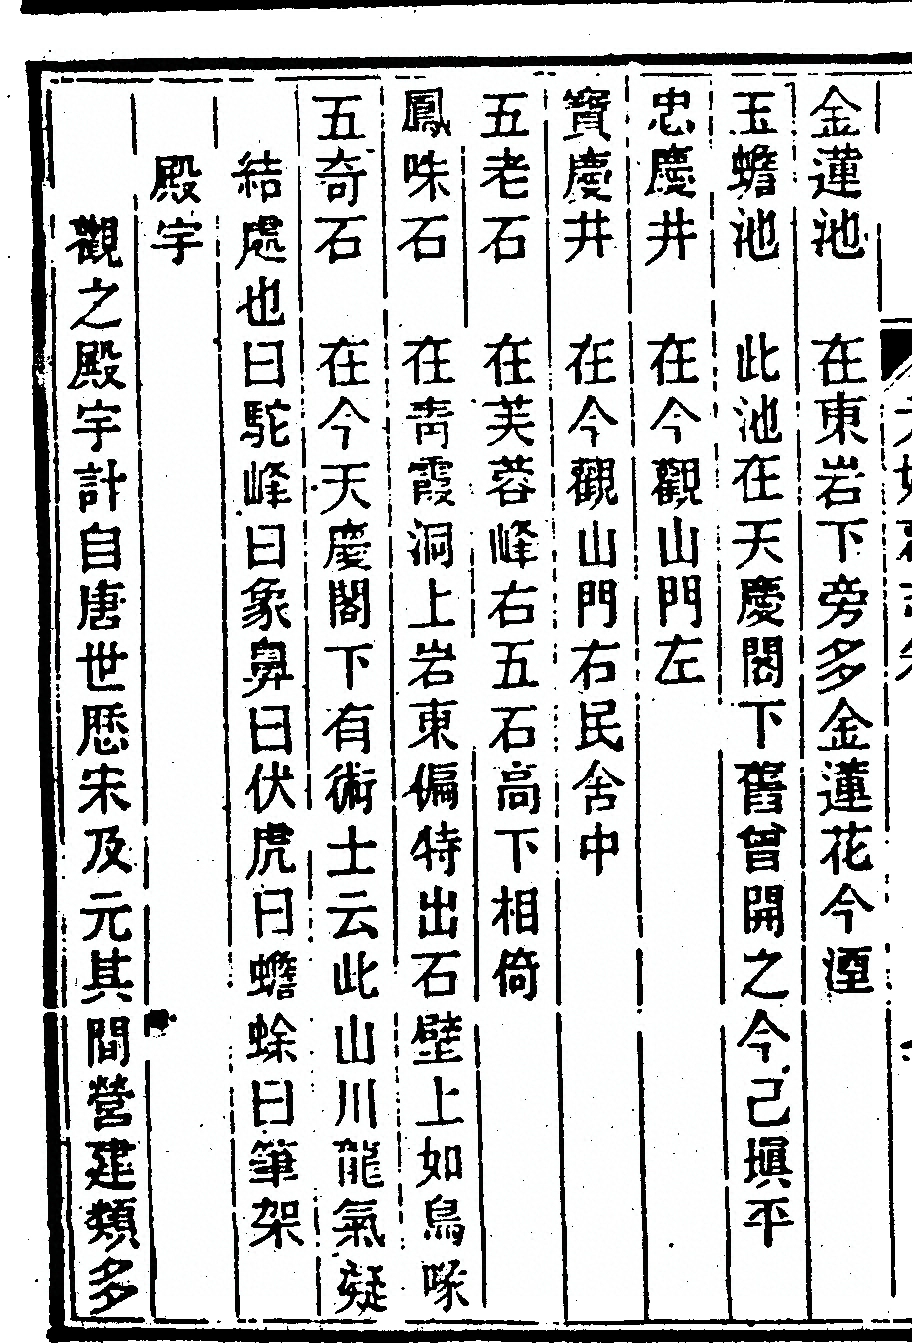 金蓮池　在東岩下旁多金蓮花今湮
玉蟾池　此池在天慶閣下舊曾開之今已塡平
忠慶井　在今觀山門左
寶慶井　在今觀山門右民舍中
五老石　在芙蓉峰右五石高下相倚
鳳咮石　在靑霞洞上岩東偏特出石壁上如鳥喙
五奇石　在今天慶閣下有術士云此山川龍氣凝
結處也曰駝峰曰象鼻曰伏虎曰蟾蜍曰筆架
殿宇
觀之殿宇計自唐世歷宋及元其間營建類多